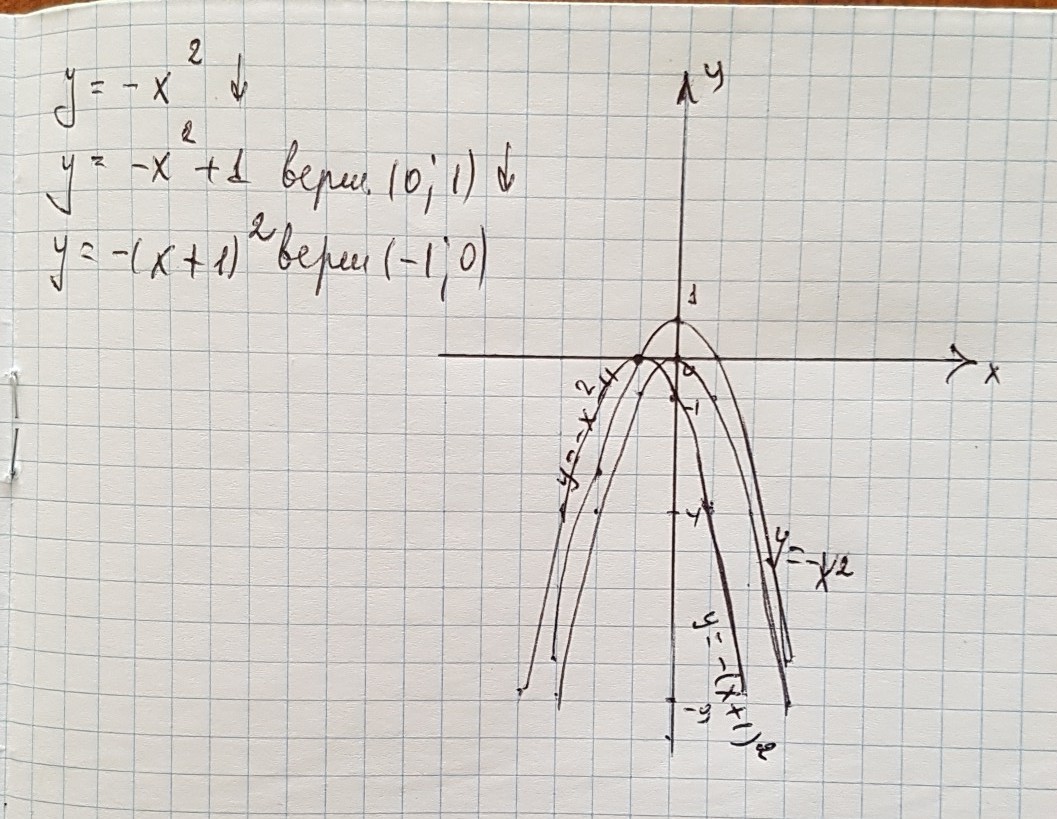 y = -x² ↓
y = -x² + 1 верш. (0; 1) ↓
y = -(x + 1)² верш (-1; 0)
y
1
x
0
-1
y = -x²
4
y = -x²
y = -(x+1)²
-9